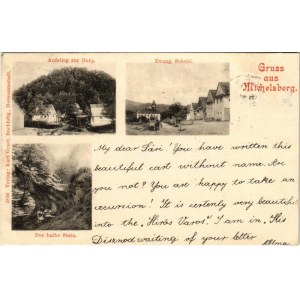 Aufstieg zur Burg.
Evang. Schule.
Gruss
aus
Michelsberg.
Verlag: Karl Graef, Buchhdlg. Hermannstadt.
Der kalte Stein.
My dear Sári! You have written this
beautiful cart without name. Are
you not? You are happy to take an
excursion! It is certenly very beautiful
into the "Hirös Varos". I am in.
waiting of your letter